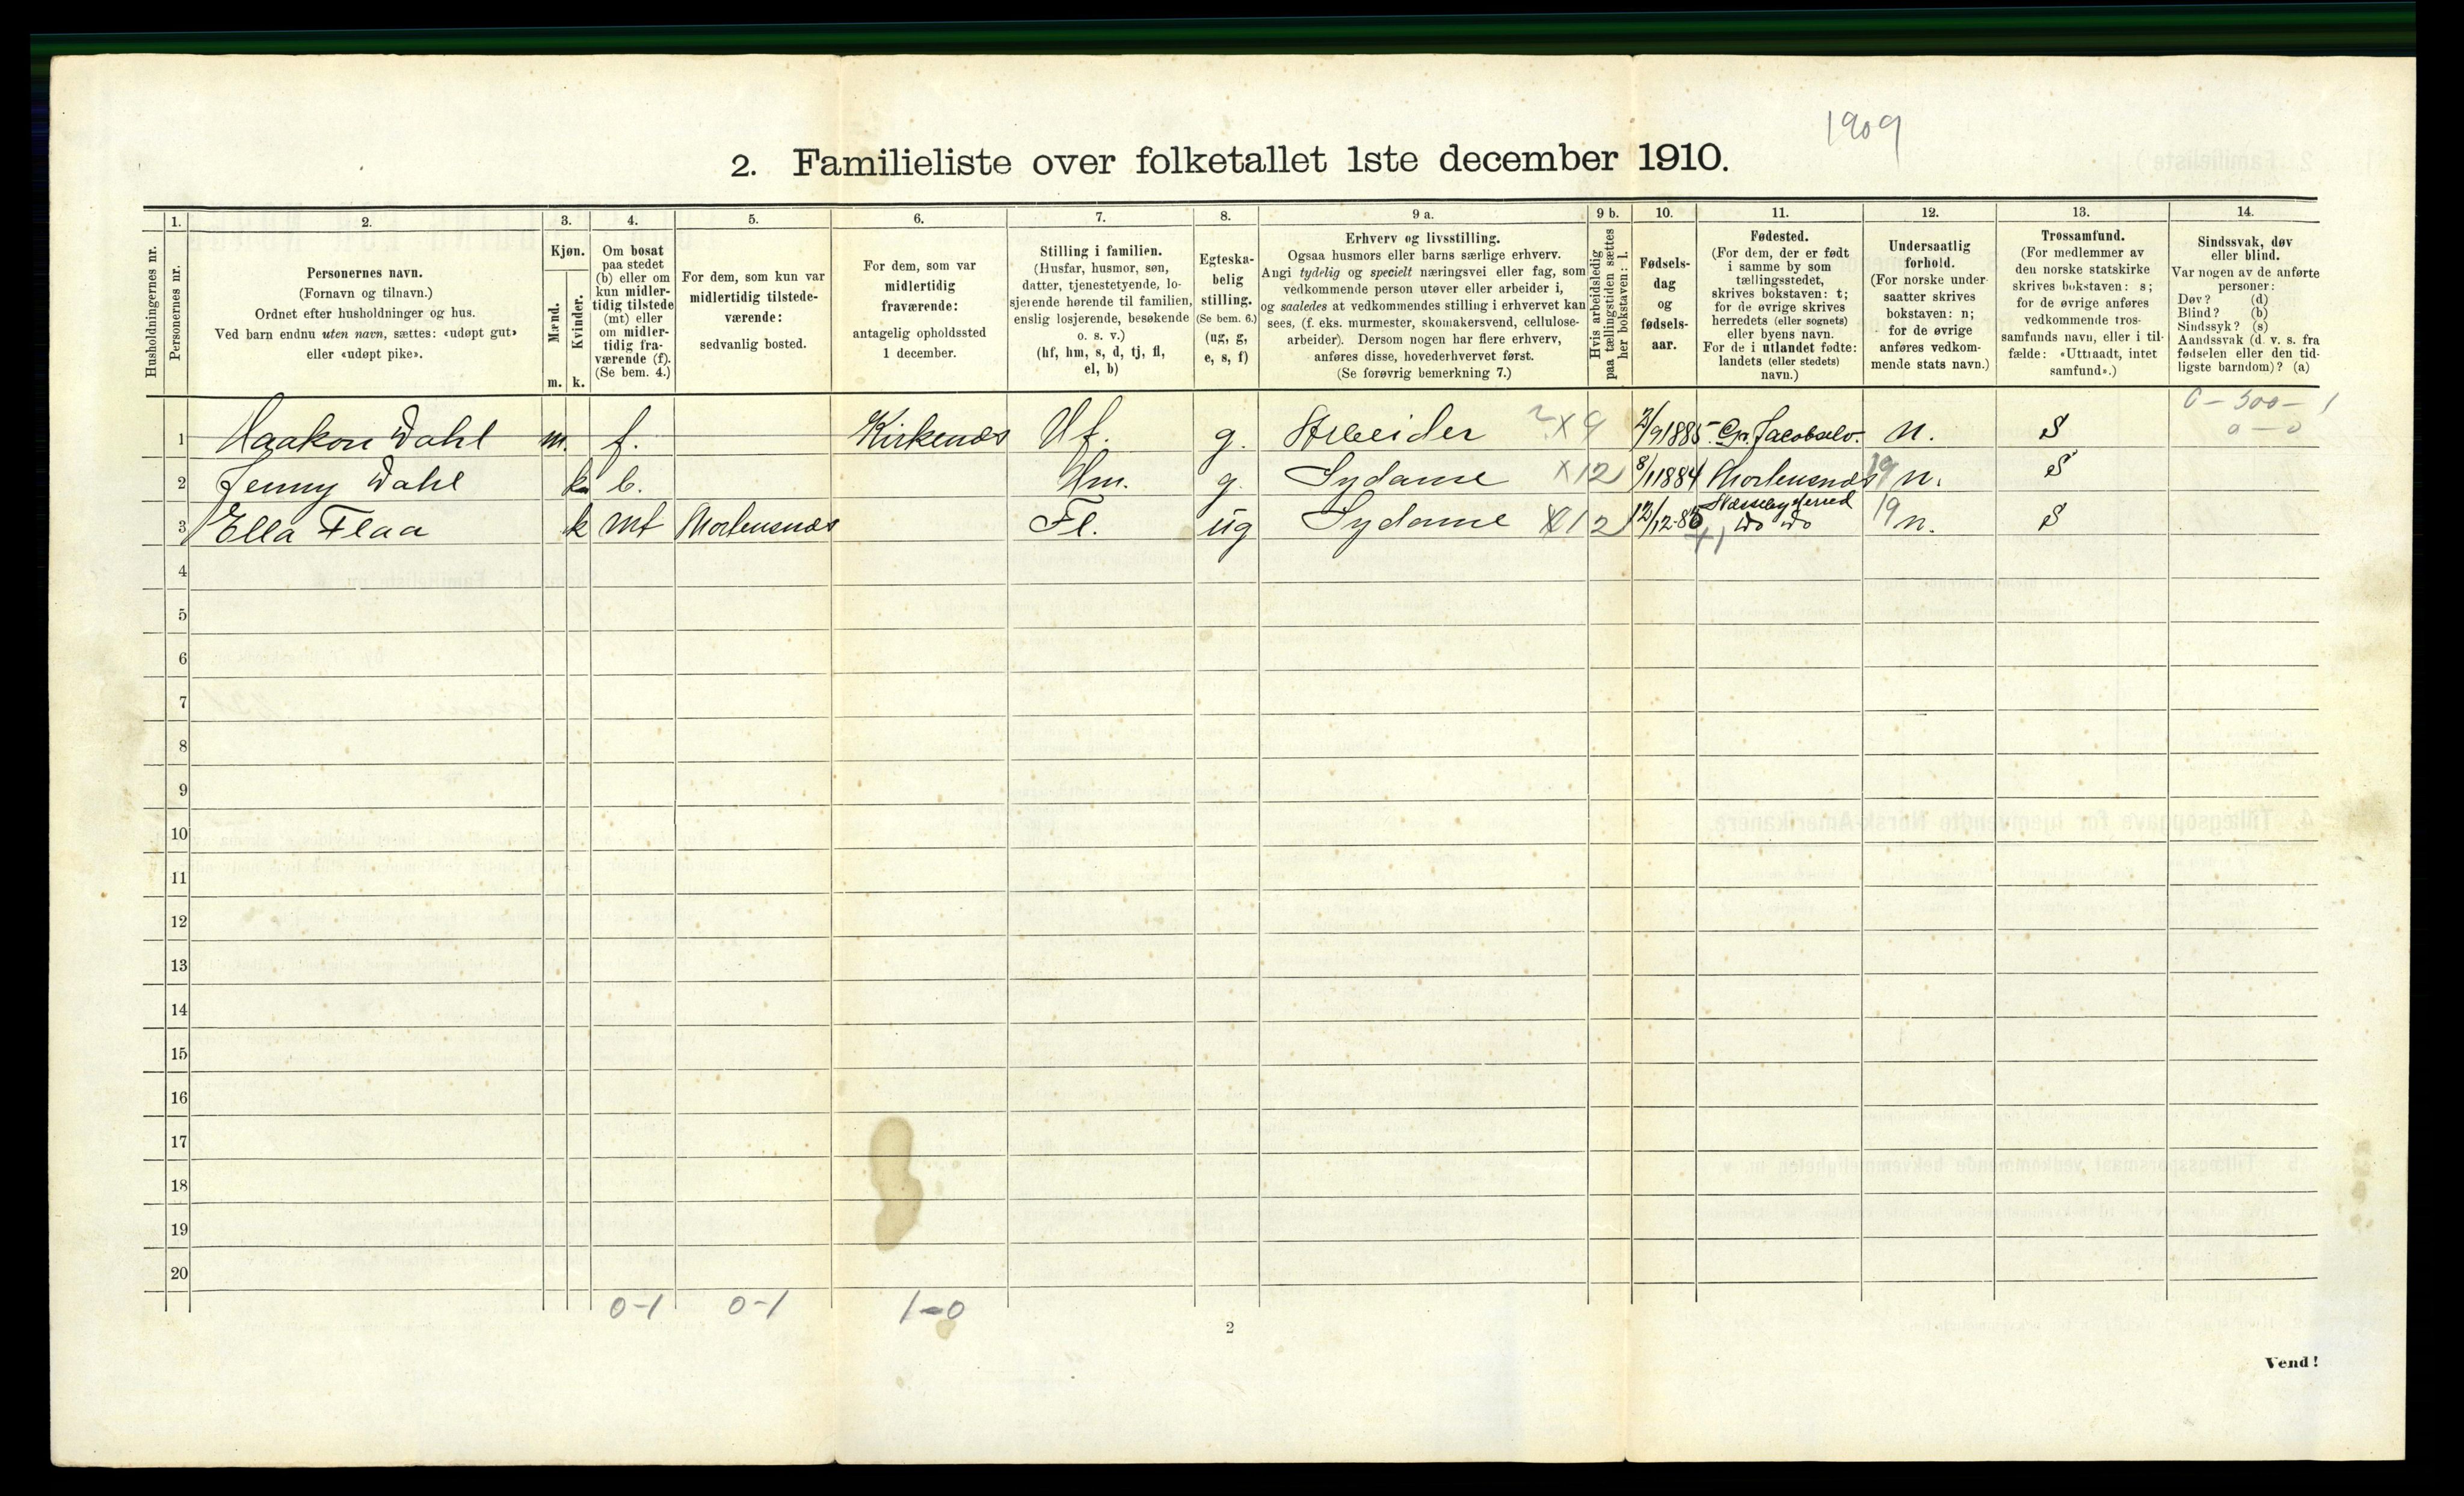 1909
2. Familieliste over folketallet 1ste december 1910.
Husholdningernes nr.
1.
Personernes nr.
2.
Personernes navn.
(Fornavn og tilnavn.)
Ordnet efter husholdninger og hus.
Ved barn endnu uten navn, sættes: «udøpt gut»
eller «udøpt pike».
3.
Kjøn.
Mænd.
m.
Kvinder.
k.
4.
Om bosat
paa stedet
(b) eller om
kun midler-
tidig tilstede
(mt) eller
om midler-
tidig fra-
værende (f).
(Se bem. 4.)
5.
For dem, som kun var
midlertidig tilstede-
værende:
sedvanlig bosted.
6.
For dem, som var
midlertidig
fraværende:
antagelig opholdssted
1 december.
7.
Stilling i familien.
(Husfar, husmor, søn,
datter, tjenestetyende, lo-
sjerende hørende til familien,
enslig losjerende, besøkende
o. s. v.)
(hf, hm, s, d, tj, fl,
el, b)
8.
Egteska-
belig
stilling.
(Se bem. 6.)
(ug, g,
e, s, f)
9 a.
Erhverv og livsstilling.
Ogsaa husmors eller barns særlige erhverv.
Angi tydelig og specielt næringsvei eller fag, som
vedkommende person utøver eller arbeider i,
og saaledes at vedkommendes stilling i erhvervet kan
sees, (f. eks. murmester, skomakersvend, cellulose-
arbeider). Dersom nogen har flere erhverv,
anføres disse, hovederhvervet først.
(Se forøvrig bemerkning 7.)
9 b.
Hvis arbeidsledig
paa tællingstiden sættes
her bokstaven: l.
10.
Fødsels-
dag
og
fødsels-
aar.
11.
Fødested.
(For dem, der er født
i samme by som
tællingsstedet,
skrives bokstaven: t;
for de øvrige skrives
herredets (eller sognets)
eller byens navn.
For de i utlandet fødte:
landets (eller stedets)
navn.)
12.
Undersaatlig
forhold.
(For norske under-
saatter skrives
bokstaven: n;
for de øvrige
anføres vedkom-
mende stats navn.)
13.
Trossamfund.
(For medlemmer av
den norske statskirke
skrives bokstaven: s;
for de øvrige anføres
vedkommende tros-
samfunds navn, eller i til-
fælde: «Uttraadt, intet
samfund».)
14.
Sindssvak, døv
eller blind.
Var nogen av de anførte
personer:
Døv? (d)
Blind? (b)
Sindssyk? (s)
Aandssvak (d. v. s. fra
fødselen eller den tid-
ligste barndom)? (a)
0 - 500 - 1
0 - 0
1 Haakon Dahl m. f. Kirkenæs Hf. g. Arbeider x 9 2/9 1885 Gr. Jacobselv. n. S
2 Jenny Dahl k b. Hm. g. Sydame x 12 8/1 1884 Mortensnæs 19 n. S
Næsseby herred
3 Ella Flaa k mt Mortensnæs Fl. ug Sydame x 12 12/12-85 do do 19 n. S
+1
4
5
6
7
8
9
10
11
12
13
14
15
16
17
18
19
20
0-1 0-1 1-0
2
Vend!